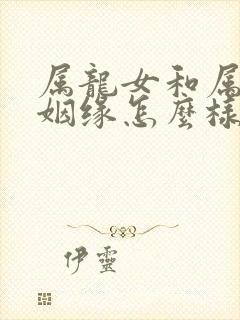 属龍女和属
姻缘怎麼樣
伊靈